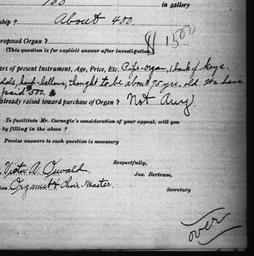 100 in gallery
ship ? About 400.
proposed Organ ?
$ 1500
(This question is for explicit answer after investigation)
ars of present Instrument, Age, Price, Etc. Pipe-organ, 1 bank of keys.
pedals, hand-bellows, thought to be about 75 yrs. old. We have
paid 500. $
already raised toward purchase of Organ ? Not Any.
To facilitate Mr. Carnegie's consideration of your appeal, will you
by filling in the above ?
Precise answers to each question is necessary
Respectfully,
Victor A. Oswald Jas. Bertram,
Organist & Choir-Master. Secretary
over